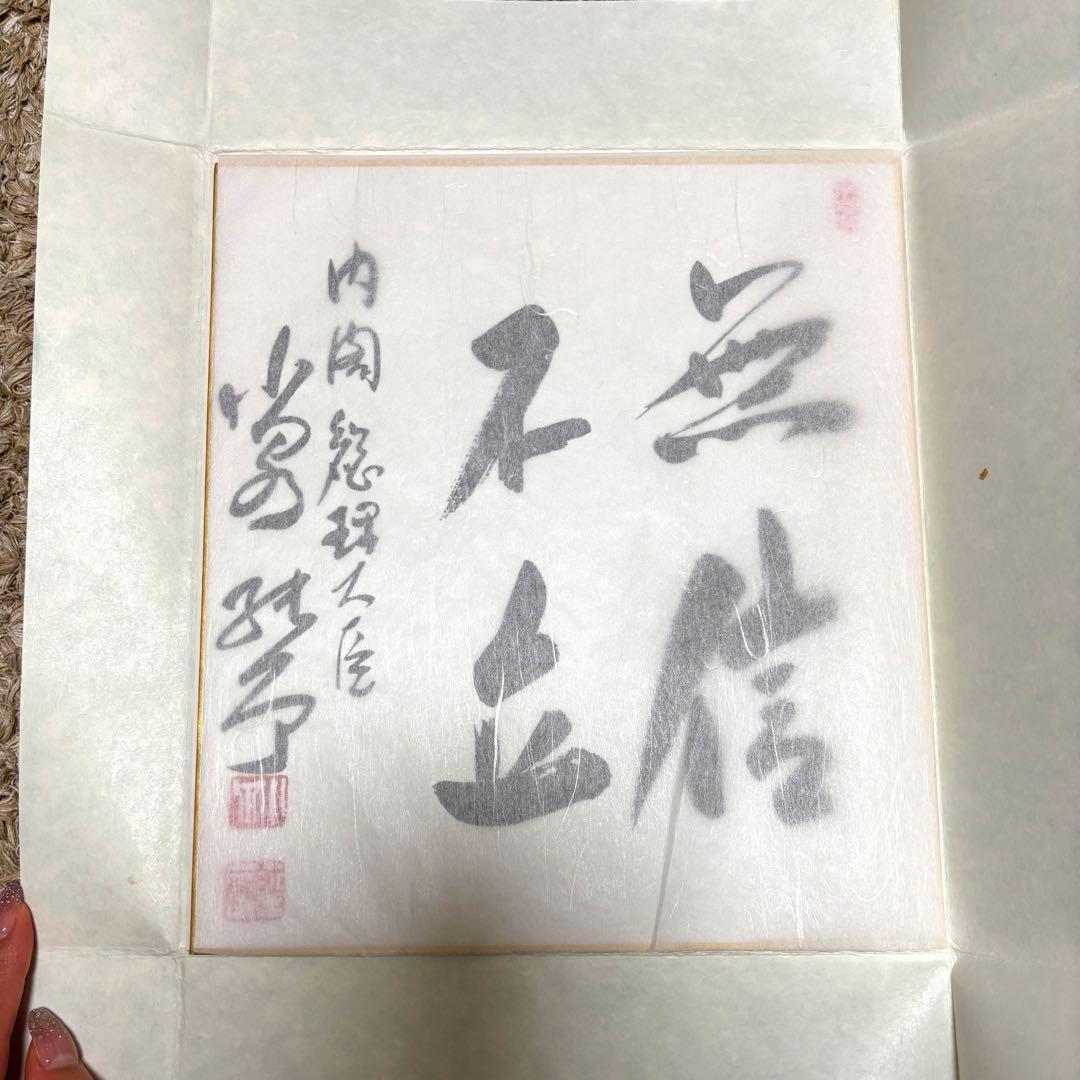 無信
不立
内閣総理大臣
小泉純一郎